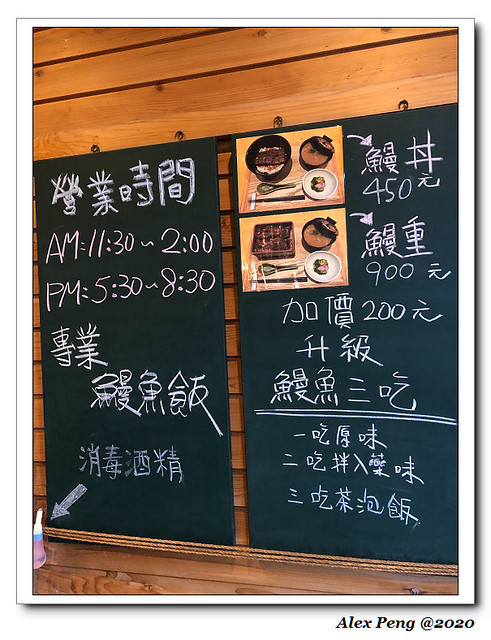 營業時間
AM:11:30~2:00
PM:5:30~8:30
專業
鰻魚飯
消毒酒精
鰻丼
450元
鰻重
900元
加價200元
升級
鰻魚三吃
一吃原味
二吃拌入藥味
三吃茶泡飯
Alex Peng @2020